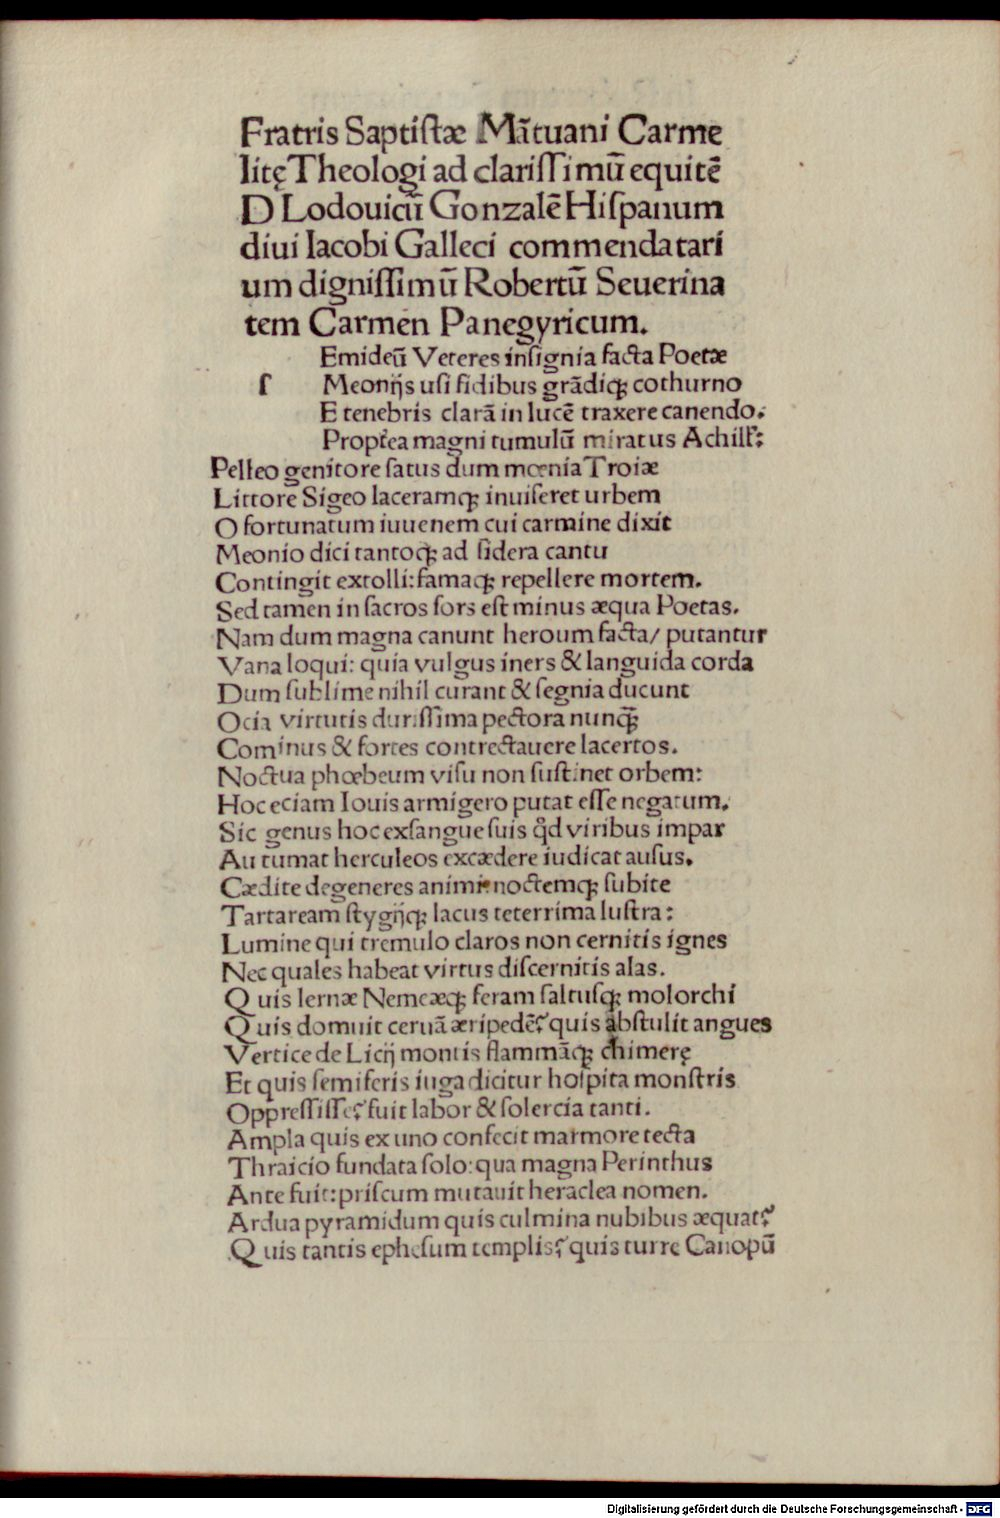 Fratris Saptiſtæ Mãtuani Carme
litę Theologi ad clariſſimũ equitẽ
D Lodouicũ Gonzalẽ Hiſpanum
diui Iacobi Galleci commendatari
um digniſſimũ Robertũ Seuerina
tem Carmen Panegyricum.
Emideũ Veteres inſignia facta Poetæ
ſ Meonijs uſi fidibus grãdiqꝫ cothurno
E tenebris clarã in lucẽ traxere canendo.
Propt̃ea magni tumulũ miratus Achilſ:
Pelleo genitore ſatus dum mœnia Troiæ
Littore Sigeo laceramqꝫ inuiſeret urbem
O fortunatum iuuenem cui carmine dixit
Meonio dici tantoqꝫ ad ſidera cantu
Contingit extolli: famaqꝫ repellere mortem.
Sed tamen in ſacros ſors eſt minus æqua Poetas.
Nam dum magna canunt heroum facta/ putantur
Vana loqui: quia vulgus iners & languida corda
Dum ſublime nihil curant & ſegnia ducunt
Ocia virtutis duriſſima pectora nunq̃ꝫ
Cominus & fortes contrectauere lacertos.
Noctua phœbeum viſu non ſuſtinet orbem:
Hoc eciam Iouis armigero putat eſſe negatum.
Sic genus hoc exſangue ſuis qd̊ viribus impar
Au tumat herculeos excædere iudicat auſus.
Cædite degeneres animi noctemqꝫ ſubite
Tartaream ſtygijqꝫ lacus teterrima luſtra:
Lumine qui tremulo claros non cernitis ignes
Nec quales habeat virtus diſcernitis alas.
Q uis lernæ Nemeæqꝫ feram ſaltuſqꝫ molorchi
Q uis domuit ceruã æripedẽ? quis abſtulit angues
Vertice de Licij montis flammãqꝫ chimerę
Et quis ſemiferis iuga dicitur hoſpita monſtris
Oppreſſiſſe? fuit labor & ſolercia tanti.
Ampla quis ex uno confecit marmore tecta
Thraicio fundata ſolo: qua magna Perinthus
Ante fuit: priſcum mutauit heraclea nomen.
Ardua pyramidum quis culmina nubibus æquat?
Q uis tantis epheſum templis? quis turre Canopũ
Digitalisierung gefördert durch die Deutsche Forschungsgemeinschaft - DFG